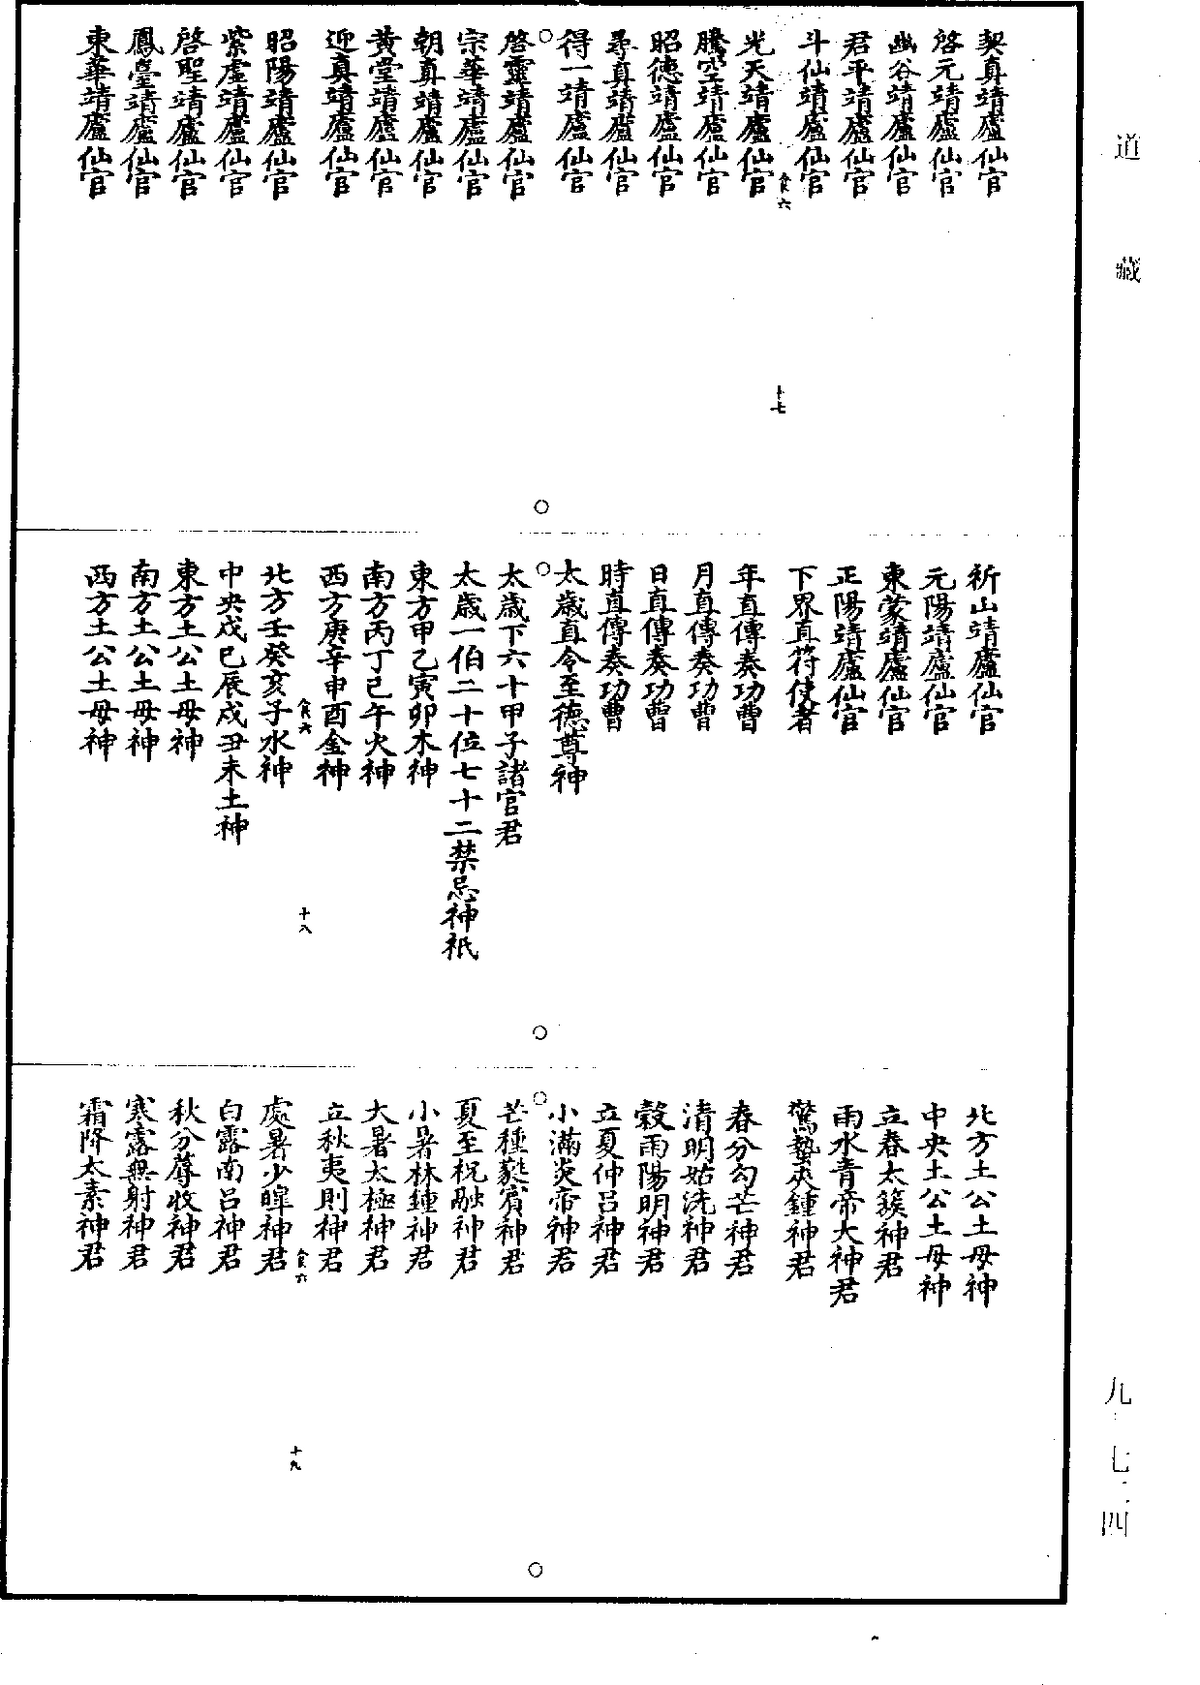 道藏
契真靖廬仙官
啓元靖廬仙官
幽谷靖廬仙官
君平靖廬仙官
斗仙靖廬仙官
食六
十七
光天靖廬仙官
騰空靖廬仙官
昭德靖廬仙官
尋真靖廬仙官
得一靖廬仙官
啓靈靖廬仙官
宗華靖廬仙官
朝真靖廬仙官
黃堂靖廬仙官
迎真靖廬仙官
昭陽靖廬仙官
紫虛靖廬仙官
啓聖靖廬仙官
鳳臺靖廬仙官
東華靖廬仙官
祈山靖廬仙官
元陽靖廬仙官
東蒙靖廬仙官
正陽靖廬仙官
下界直符使者
年直傳奏功曹
月直傳奏功曹
日直傳奏功曹
時直傳奏功曹
太歲直令至德尊神
太歲下六十甲子諸官君
太歲一伯二十位七十二禁忌神祇
東方甲乙寅卯木神
南方丙丁巳午火神
西方庚辛申酉金神
食六
十八
北方壬癸亥子水神
中央戊己辰戌丑未土神
東方土公土母神
南方土公土母神
西方土公土母神
北方土公土母神
中央土公土母神
立春太簇神君
雨水青帝大神君
驚蟄夾鍾神君
春分勾芒神君
清明姑洗神君
穀雨陽明神君
立夏仲呂神君
小滿炎帝神君
芒種蕤賓神君
夏至祝融神君
小暑林鍾神君
大暑太極神君
立秋夷則神君
食六
十九
處暑少皞神君
白露南呂神君
秋分蓐收神君
寒露無射神君
霜降太素神君
九·七四